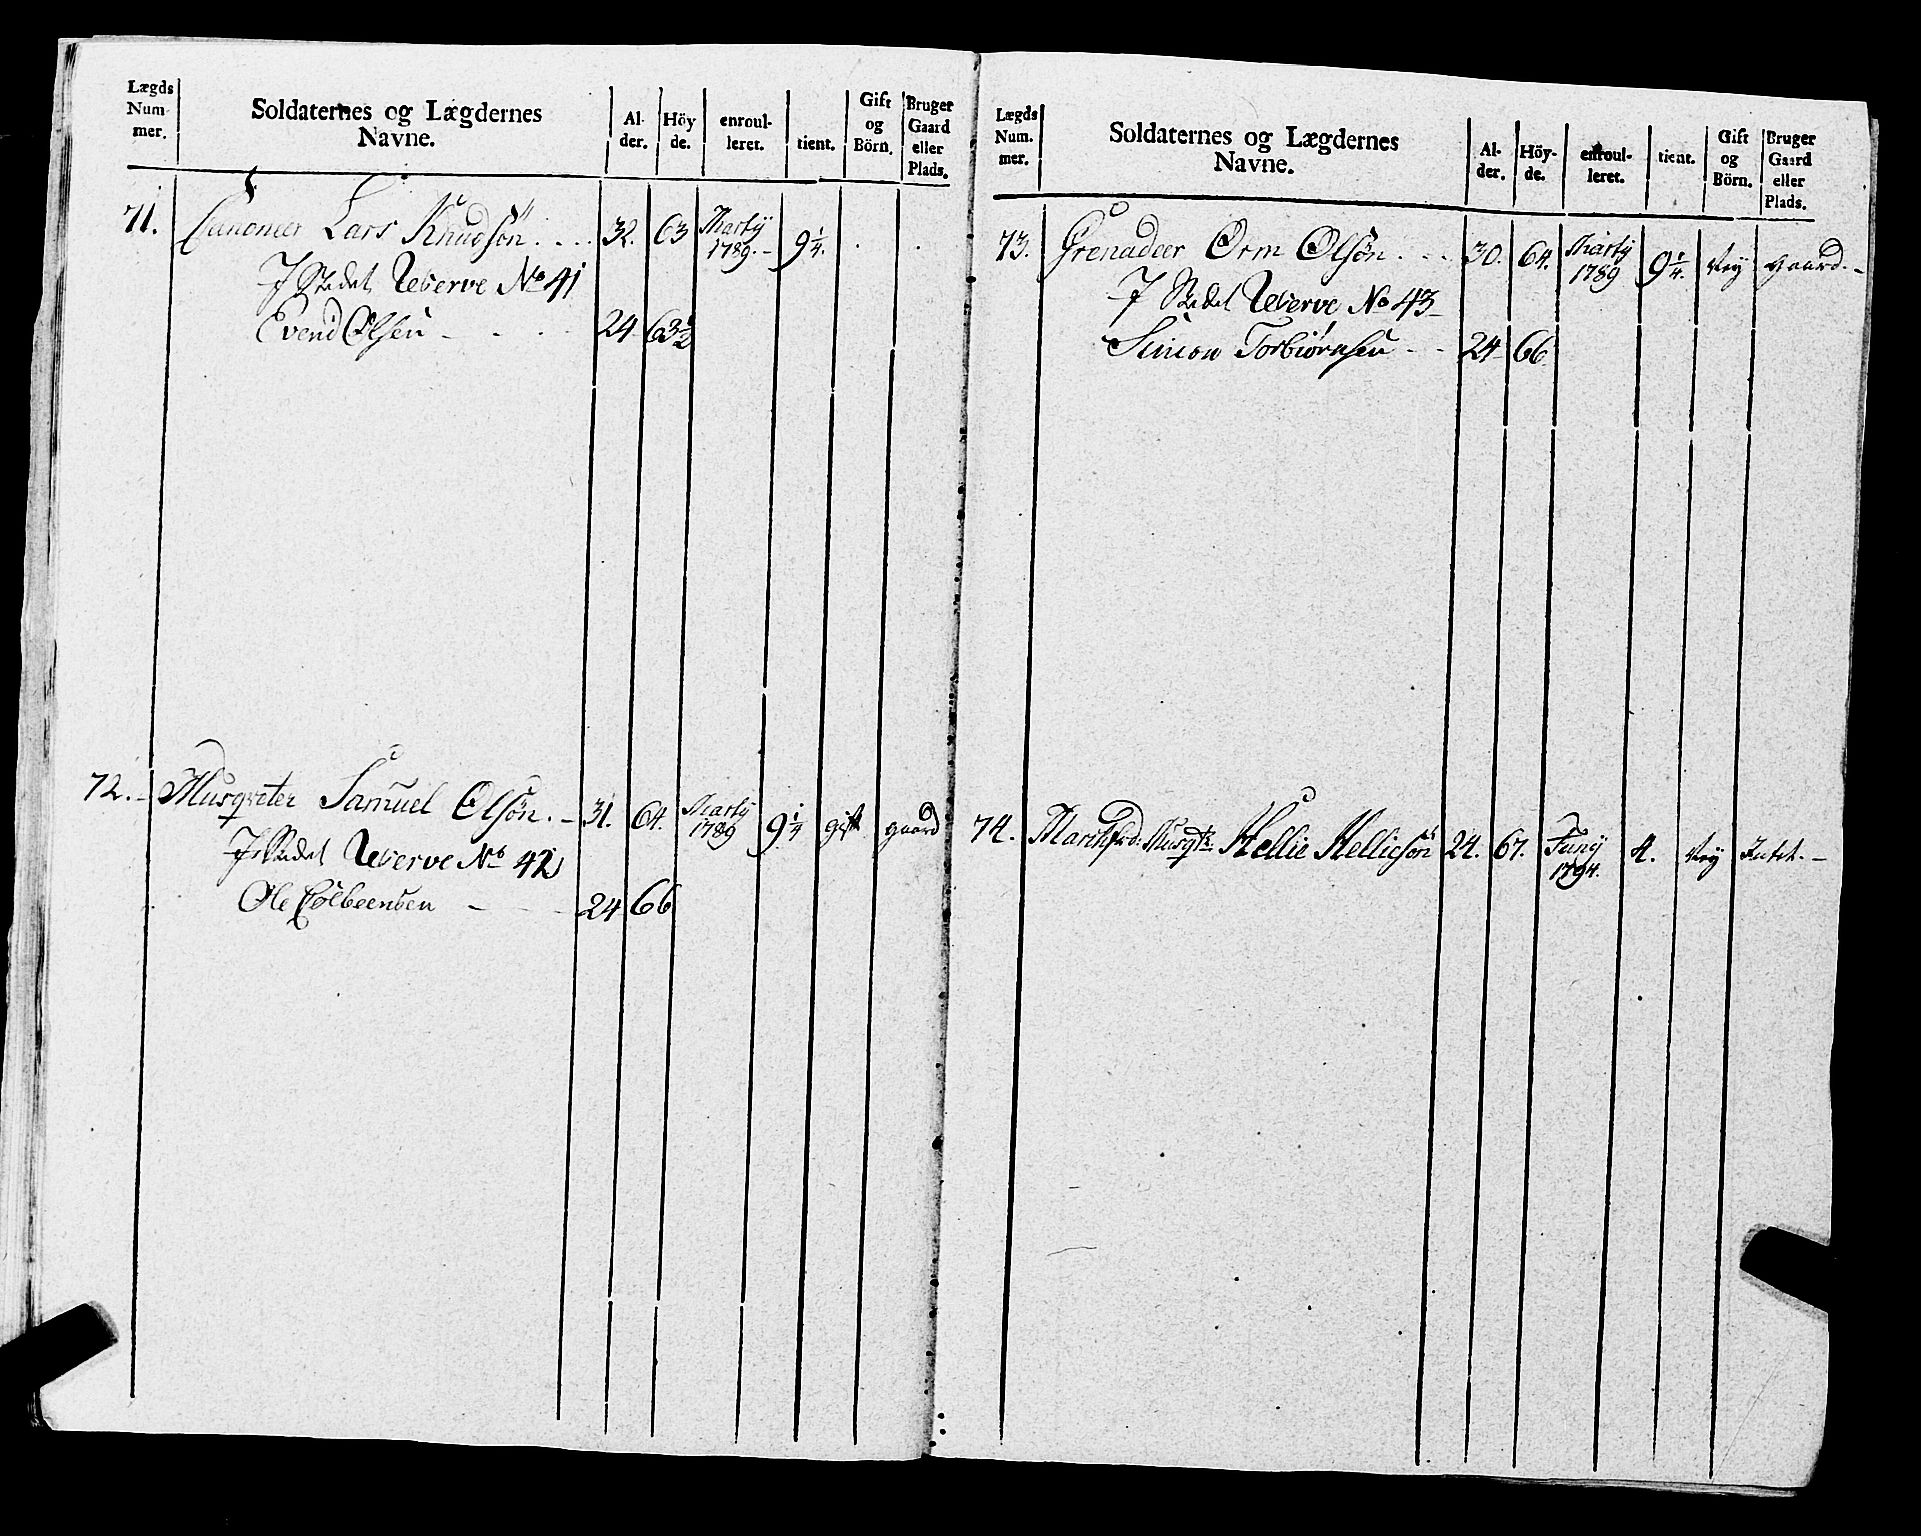 Lægds Num- mer. Soldaternes og Lægdernes Navne. Al- der. Höy de. enroul- leret. tient. Gift og Börn. Bruger Gaard eller Plads.
71. Canoneer Lars Knudsön 32. 63 Martÿ 1789. 9 1/4.
I Stedet Werve No 41
Evend Olsen 24 63 1/2
72. Musqveter Samuel Olsön. 31. 64. Martÿ 1789 9 1/4 gift gaard
I Stedet Werve No 42
Ole 24 66
Lægds Num. mer. Soldaternes og Lægdernes Navne. Al- der. Höy- de. enroul- leret. tient. Gift og Börn. Bruger Gaard eller Plads.
73. Grenadeer Orm Olsön 30. 64. Martÿ 1789 9 1/4. gaard.
I Stedet Werve No 43
Simon Torbiørnsen 24 66
74. Hellie Hellicsön 24. 67. Junÿ 1794. 4.